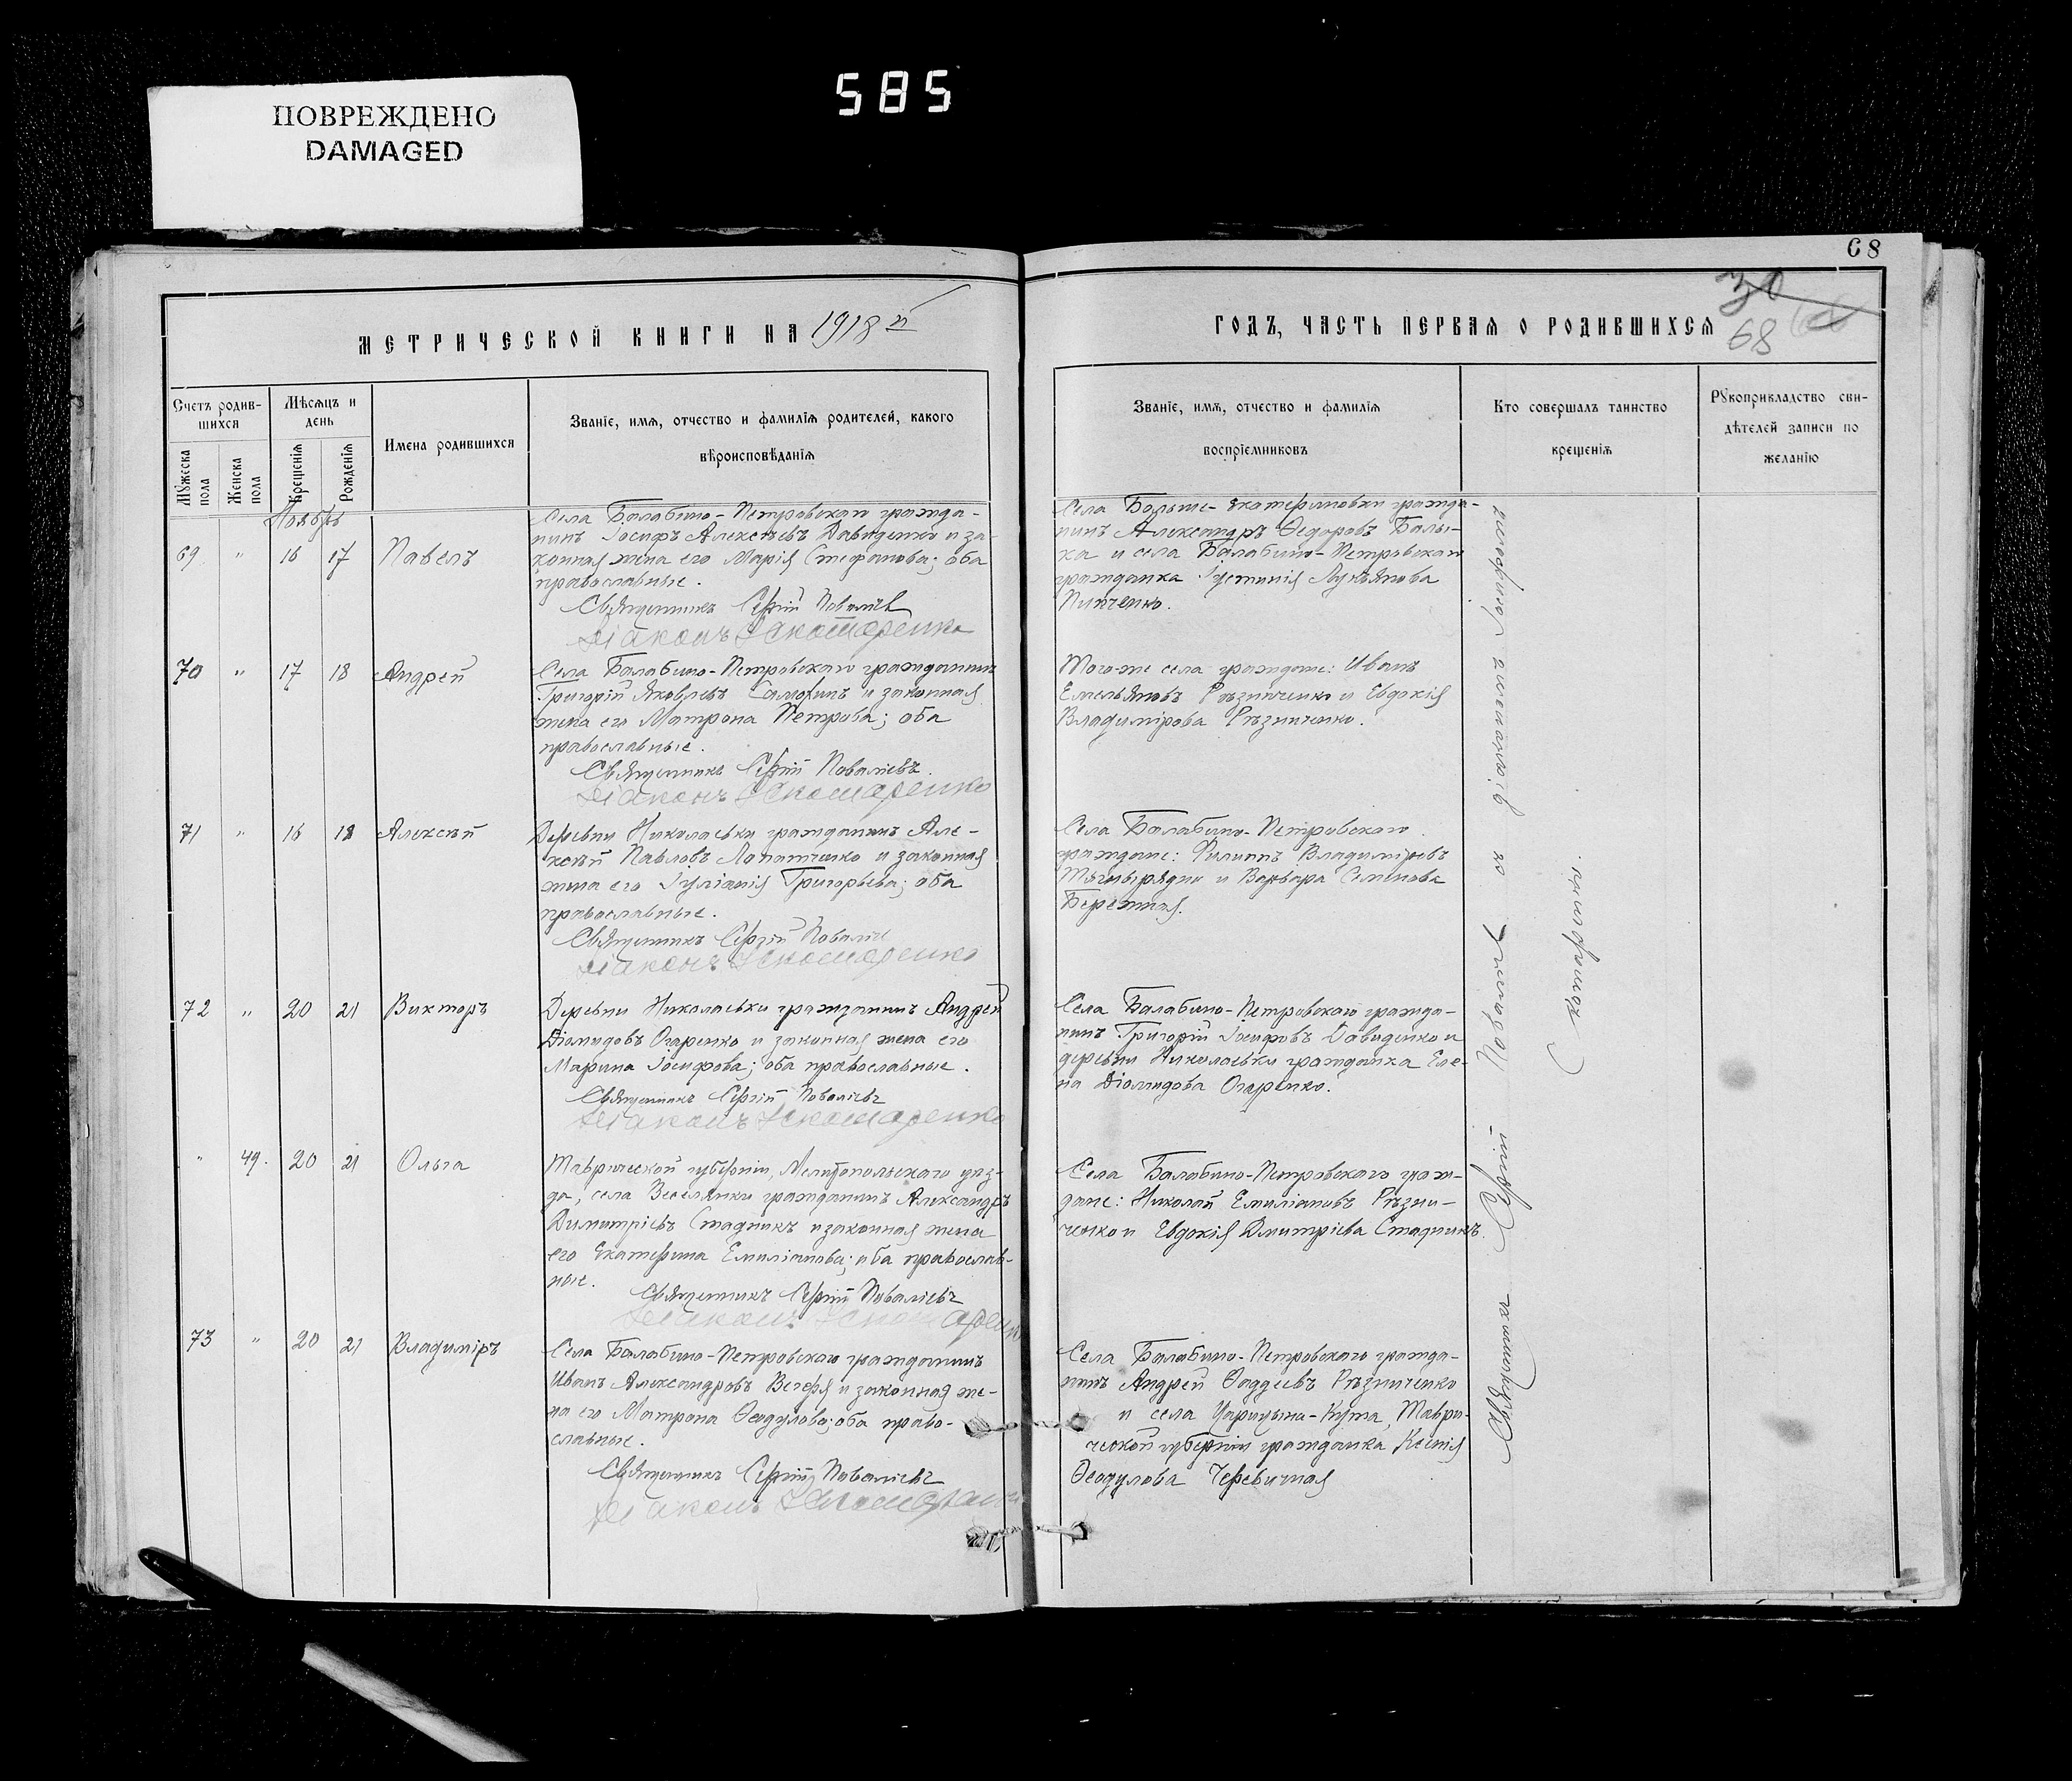 ПОВРЕЖДЕНО
DAMAGED
585
68
МЕТРИЧЕСКОЙ КНИГИ НА 1918 й
ГОДЪ, ЧАСТЬ ПЕРВАЯ О РОДИВШИХСЯ
30
68
Счетъ родив-
шихся
Мѣсяцъ и
день
Мужеска
пола
Женска
пола
Крещенія
Рожденія
Имена родившихся
Званіе, имя, отчество и фамилія родителей, какого
вѣроисповѣданія
Званіе, имя, отчество и фамилія
воспріемниковъ
Кто совершалъ таинство
крещенія
Рукоприкладство сви-
дѣтелей записи по
желанію
Ноябрь
69 " 16 17 Павелъ
Села Балабино-Петровскаго гражда-
нинъ Іосифъ Алексѣевъ Давиденко и за-
конная жена его Марія Стефанова; оба
православные.
Священникъ Сергій
Діаконъ
Села Больше-Екатериновки гражда-
нинъ Александръ Ѳедоровъ Балы-
ка и села Балабино-Петровскаго
гражданка Іустинія Лукьянова
70 " 17 18 Андрей
Села Балабино-Петровскаго гражданинъ
Григорій Яковлевъ и законная
жена его Матрона Петрова; оба
православные.
Священникъ Сергій Поваліевъ
Діаконъ
Того-же села граждане: Иванъ
Емельяновъ Рѣзниченко и Евдокія
Владимірова Рѣзниченко.
71 " 16 18 Алексѣй
Деревни Николаевки гражданинъ Але-
ксѣй Павловъ Лопатченко и законная
жена его Іуліанія Григорьева; оба
православные.
Священникъ Сергій
Діаконъ
Села Балабино-Петровскаго
граждане: Филиппъ Владиміровъ
и Варвара Семенова
Бережная.
72 " 20 21 Викторъ
Деревни Николаевки гражданинъ Андрей
Діомидовъ Огаренко и законная жена его
Марина Іосифова; оба православные.
Священникъ Сергій Поваліевъ
Діаконъ
Села Балабино-Петровскаго гражда-
нинъ Григорій Іосифовъ Давиденко и
деревни Николаевки гражданка Еле-
на Діомидова Огаренко.
" 49. 20 21 Ольга
Таврической губерніи, Мелитопольскаго уѣз-
да, села Веселянки гражданинъ Александръ
Димитріевъ Стадникъ и законная жена
его Екатерина Емиліанова; оба православ-
ные.
Священникъ Сергій Поваліевъ
Діаконъ
Села Балабино-Петровскаго граж-
дане: Николай Емиліановъ Рѣзни-
ченко и Евдокія Дмитріева Стадникъ.
73 " 20 21 Владиміръ
Села Балабино-Петровскаго гражданинъ
Иванъ Александровъ Вечеря и законная же-
на его Матрона Ѳеодулова; оба право-
славные.
Священникъ Сергій Поваліевъ
Діаконъ
Села Балабино-Петровскаго гражда-
нинъ Андрей Ѳаддеевъ Рѣзниченко
и села Царицына-Кута, Таври-
ческой губерніи гражданка Ксенія
Ѳеодулова Черевичная
Священникъ Сергій Поваліевъ съ діакономъ